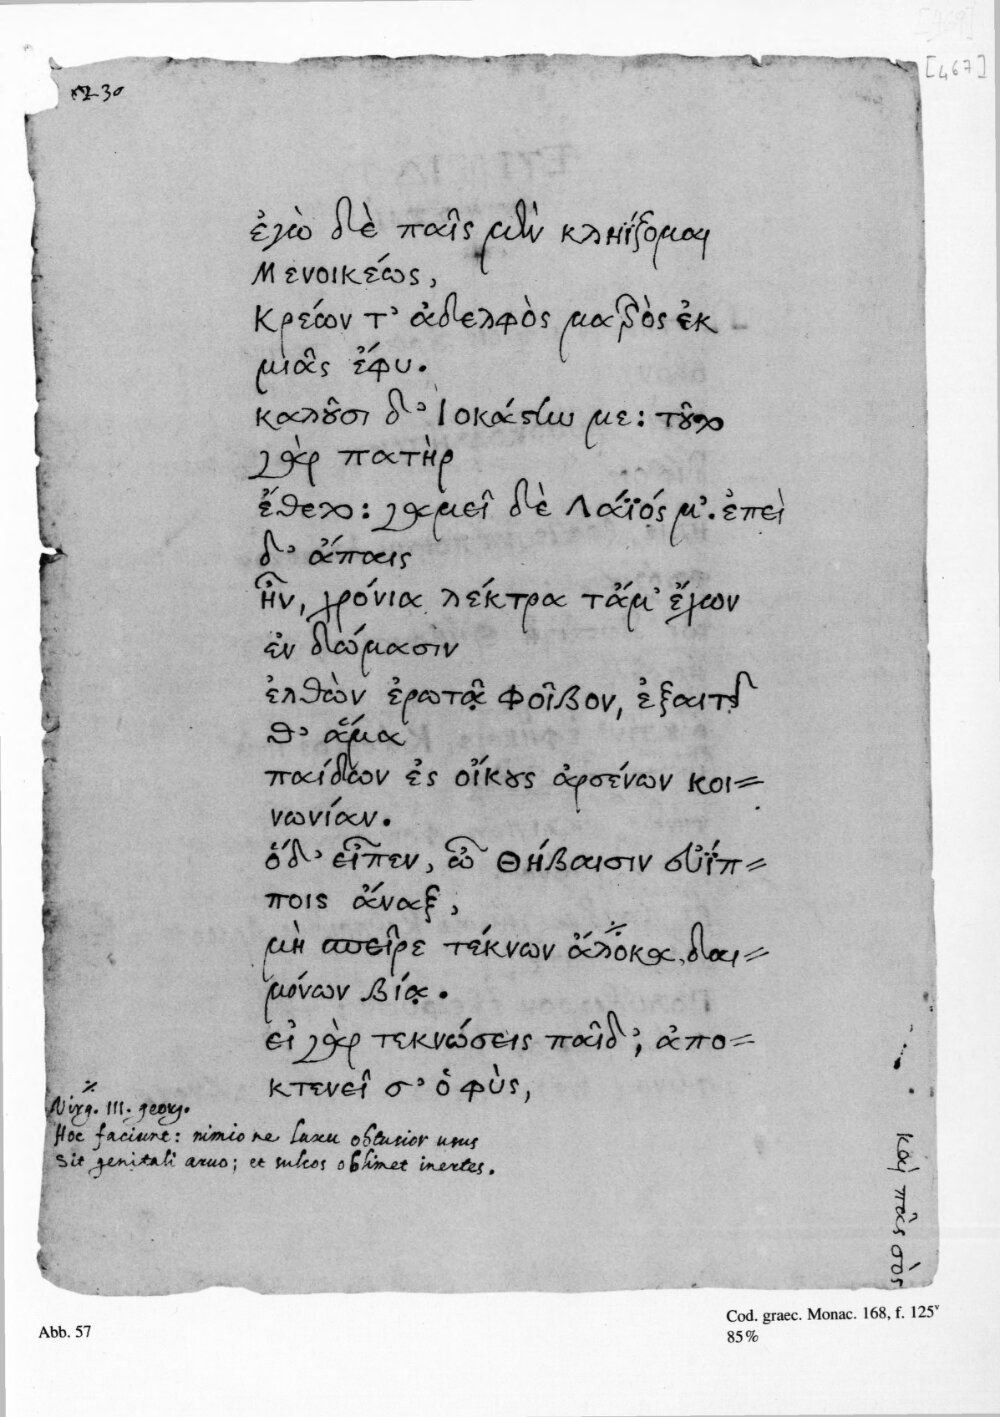 [467]
ἐγὼ δὲ παῖς μὲν κλῃΐζομαι
Μενοικέως,
Κρέων τ' ἀδελφὸς μητρὸς ἐκ
μιᾶς ἔφυ.
καλοῦσι δ' Ἰοκάστην με: τοῦτο
γὰρ πατὴρ
ἔθετο: γαμεῖ δὲ Λάϊός μ'. ἐπεὶ
δ' ἄπαις
ἦν, χρόνια λέκτρα τἄμ' ἔχων
ἐν δώμασιν
ἐλθὼν ἐρωτᾷ Φοῖβον, ἐξαιτεῖ
θ' ἅμα
παίδων ἐς οἴκους ἀρσένων κοι=
νωνίαν.
ὅδ' εἶπεν, ὦ Θήβαισιν εὐΐπ=
ποις ἄναξ,
μὴ σπεῖρε τέκνων ἄλοκα, δαι=
μόνων βίᾳ.
εἰ γὰρ τεκνώσεις παῖδ', ἀπο=
κτενεῖ σ' ὁ φὺς,
Virg. III. georg.
Hoc faciunt: nimio ne luxu obtusior usus
Sit genitali aruo; et sulcos oblimet inertes.
καὶ πᾶς σὸς
Abb. 57
Cod. graec. Monac. 168, f. 125ᵛ
85%